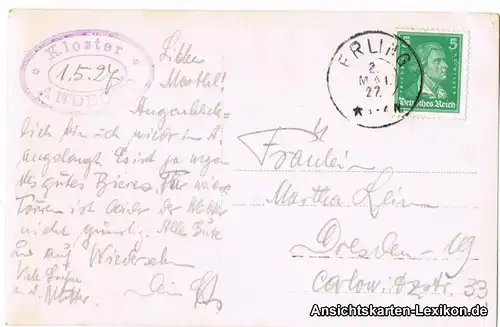 Kloster
1.5.27
ANDECHS
Liebe
Marthl!
Augenblick-
lich bin ich wieder in A.
angelangt. Es ist ja wegen
des gutes Bieres. Für weitere
Touren ist leider der Wetter
nicht günstig. Alles Gute
und auf Wiedersehn
Viele Grüße
a. d. Mutter.
Dein
ERLING
2.
MAI.
27.
5
Deutsches Reich
Fräulein
Martha Lein
Dresden-
Carlowitzstr. 33
Ansichtskarten-Lexikon.de